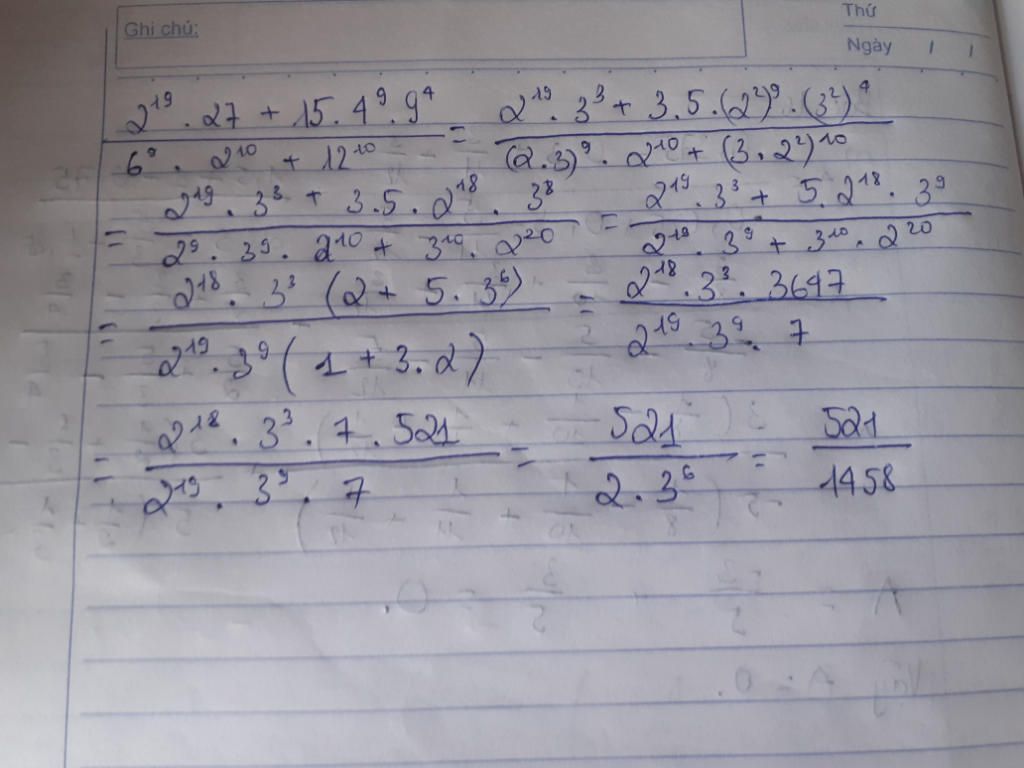 Ghi chú:
Thứ
Ngày / /
(2^19 . 27 + 15. 4^9 . 9^4)/(6^9 . 2^10 + 12^10) = (2^19 . 3^3 + 3.5.(2^2)^9 . (3^2)^4)/((2.3)^9 . 2^10 + (3.2^2)^10)
= (2^19 . 3^3 + 3.5. 2^18 . 3^8)/(2^9 . 3^9 . 2^10 + 3^10 . 2^20) = (2^19 . 3^3 + 5. 2^18 . 3^9)/(2^19 . 3^9 + 3^10 . 2^20)
= (2^18 . 3^3 (2 + 5 . 3^6))/(2^19 . 3^9 (1 + 3.2)) = (2^18 . 3^3 . 3647)/(2^19 . 3^9 . 7)
= (2^18 . 3^3 . 7 . 521)/(2^19 . 3^9 . 7) = 521/(2.3^6) = 521/1458